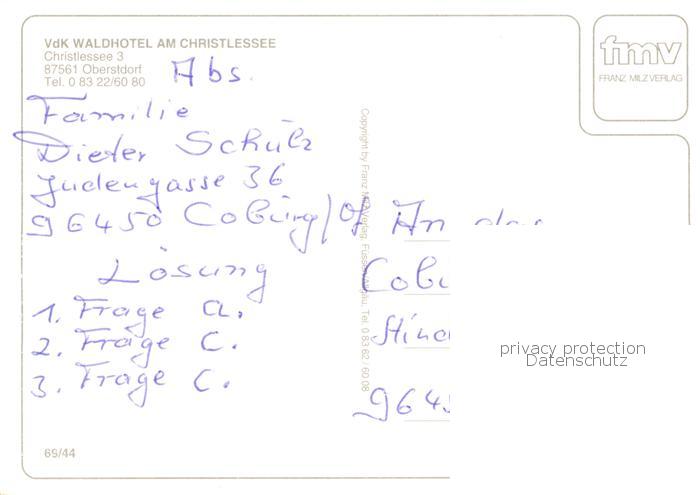 VdK WALDHOTEL AM CHRISTLESSEE
Christlessee 3
87561 Oberstdorf
Tel. 0 83 22/60 80
Abs.
Familie
Dieter Schulz
Judengasse 36
96450 Coburg/Of
Lösung
1. Frage a.
2. Frage c.
3. Frage c.
69/44
Copyright by Franz Milz Verlag, Füssen/Allgäu, Tel. 0 83 62 / 60 08
fmv
FRANZ MILZ VERLAG
An das
Cobu
964
privacy protection
Datenschutz